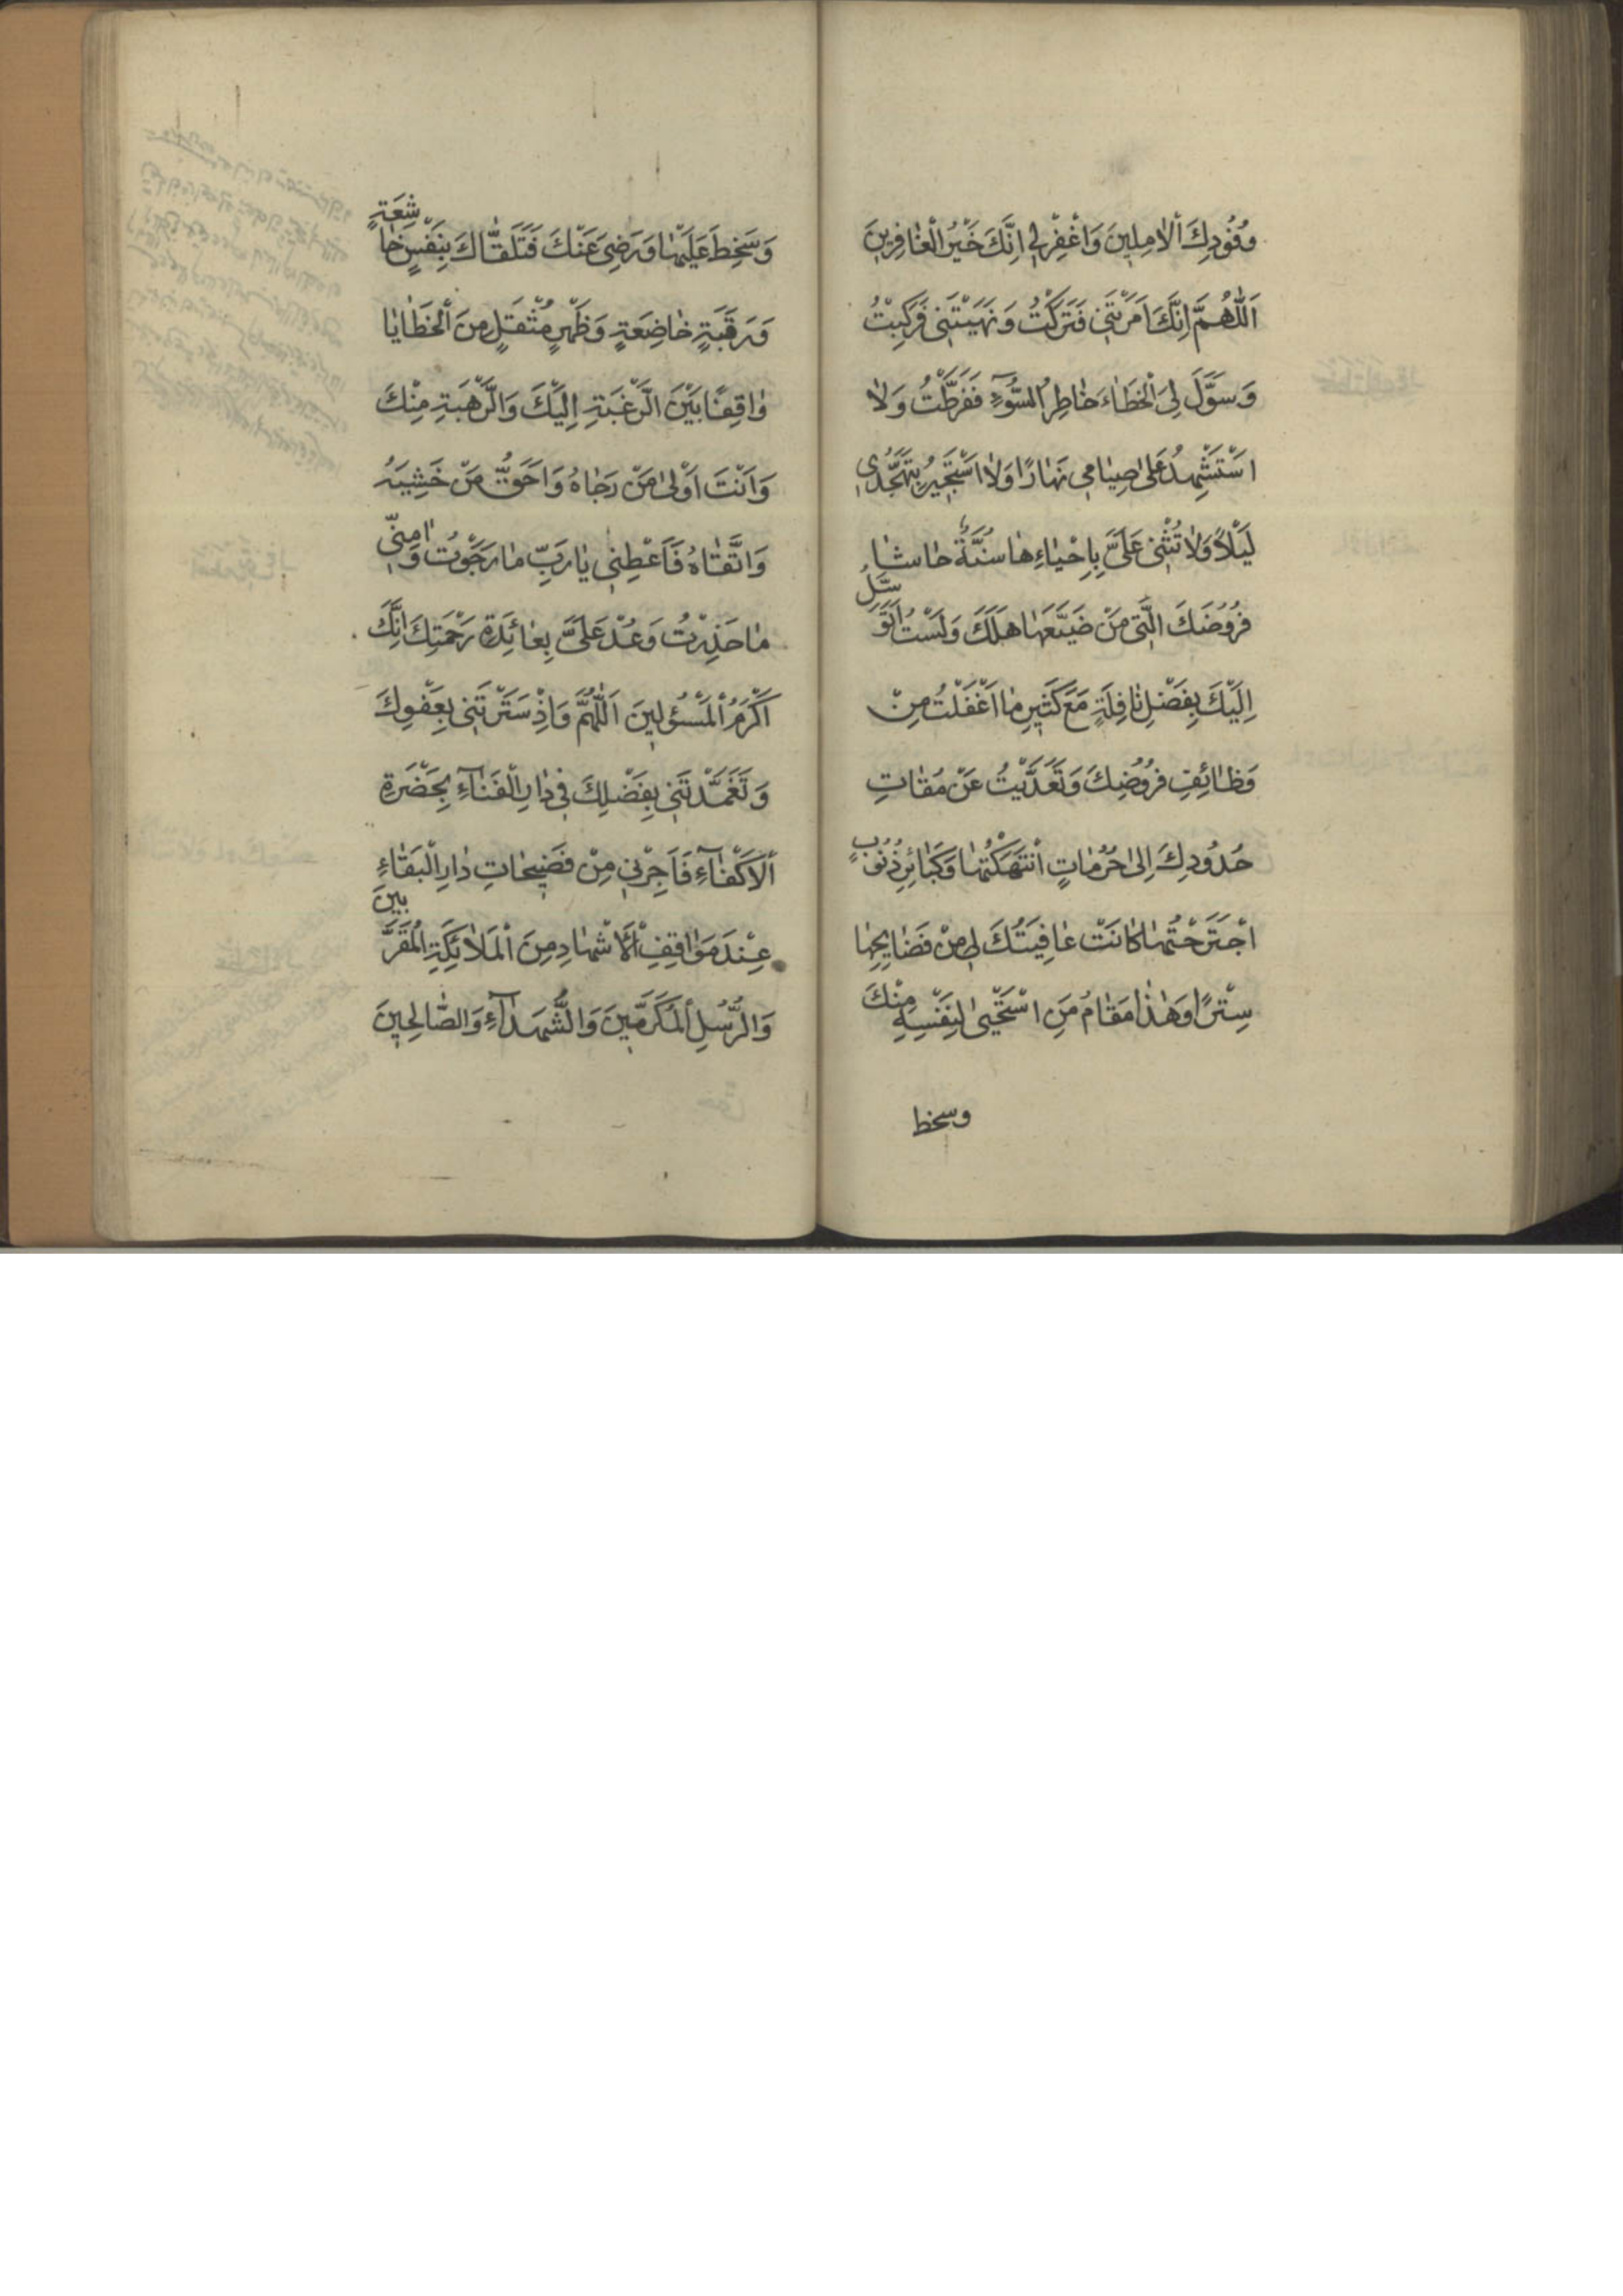 وُفُودِكَ الْاٰمِلِينَ وَاغْفِرْ لِي اِنَّكَ خَيْرُ الْغٰافِرِينَ
اَللّٰهُمَّ اِنَّكَ اَمَرْتَنِي فَتَرَكْتُ وَنَهَيْتَنِي فَرَكِبْتُ
وَسَوَّلَ لِيَ الْخَطٰاءَ خٰاطِرُ السُّوٓءِ فَفَرَّطْتُ وَلٰا
اسْتَشْهِدُ عَلىٰ صِيٰامِي نَهٰارًا وَلٰا اَسْتَجِيرُ بِتَهَجُّدِي
لَيْلًا وَلٰا تُثْنِي عَلَيَّ بِاِحْيٰاءِهٰا سُنَّةٌ حٰاشٰا
فُرُوضَكَ الَّتِي مَنْ ضَيَّعَهٰا هَلَكَ وَلَسْتُ اَتَوَسَّلُ
اِلَيْكَ بِفَضْلِ نٰافِلَةٍ مَعَ كَثِيرِ مٰا اَغْفَلْتُ مِنْ
وَظٰائِفِ فُرُوضِكَ وَتَعَدَّيْتُ عَنْ مَقٰامٰاتِ
حُدُودِكَ اِلىٰ حُرُمٰاتٍ انْتَهَكْتُهٰا وَكَبٰائِرِ ذُنُوبٍ
اجْتَرَحْتُهٰا كٰانَتْ عٰافِيَتُكَ لِي مِنْ فَضٰايِحِهٰا
سِتْرًا وَهٰذٰا مَقٰامُ مَنِ اسْتَحْيىٰ لِنَفْسِهِ مِنْكَ
وسخط
وَسَخِطَ عَلَيْهٰا وَرَضِيَ عَنْكَ فَتَلَقّٰاكَ بِنَفْسٍ خٰاشِعَةٍ
وَرَقَبَةٍ خٰاضِعَةٍ وَظَهْرٍ مُثْقَلٍ مِنَ الْخَطٰايٰا
وٰاقِفًا بَيْنَ الرَّغْبَةِ اِلَيْكَ وَالرَّهْبَةِ مِنْكَ
وَاَنْتَ اَوْلىٰ مَنْ رَجٰاهُ وَاَحَقُّ مَنْ خَشِيَهُ
وَاتَّقٰاهُ فَاَعْطِنِي يٰا رَبِّ مٰا رَجَوْتُ وَاٰمِنِّي
مٰا حَذِرْتُ وَعُدْ عَلَيَّ بِعٰائِدَةِ رَحْمَتِكَ اِنَّكَ
اَكْرَمُ الْمَسْئُولِينَ اَللّٰهُمَّ وَاِذْ سَتَرْتَنِي بِعَفْوِكَ
وَتَغَمَّدْتَنِي بِفَضْلِكَ فِي دٰارِ الْفَنٰآءِ بِحَضْرَةِ
الْاَكْفٰآءِ فَاَجِرْنِي مِنْ فَضِيحٰاتِ دٰارِ الْبَقٰاءِ
عِنْدَ مَوٰاقِفِ الْاَشْهٰادِ مِنَ الْمَلٰائِكَةِ الْمُقَرَّبِينَ
وَالرُّسُلِ الْمُكَرَّمِينَ وَالشُّهَدٰآءِ وَالصّٰالِحِينَ